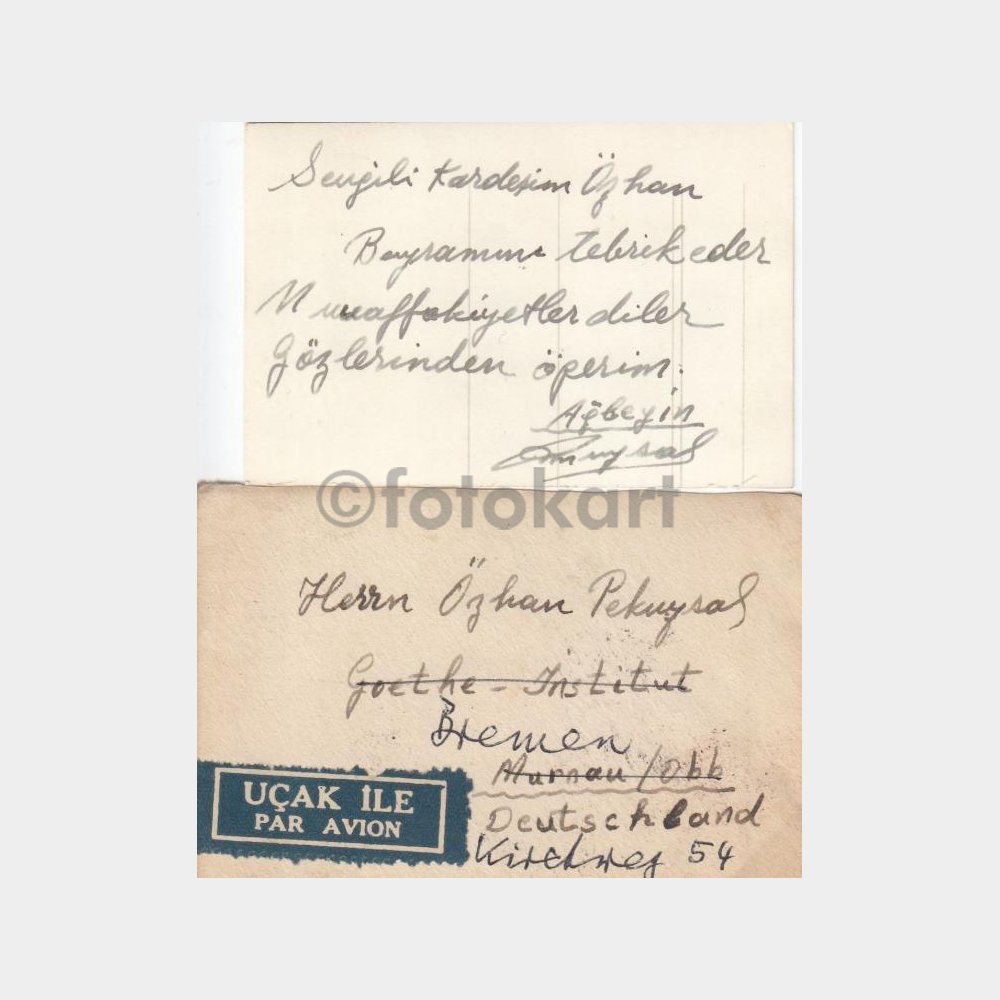 Sevgili Kardeşim Özhan
Bayramını tebrik eder
Muaffakiyetler diler
Gözlerinden öperim.
Ağbeyin
©fotokart
Herrn Özhan Pekuysal
Goethe - Institut
Bremen
Murnau / Obb
Deutschland
Kirchweg 54
UÇAK İLE
PAR AVION